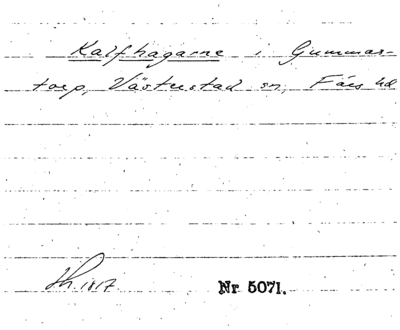 Kalfhagarne i Gummar-
torp, Västerstad sn, Färs hd
1817 Nr 5071.